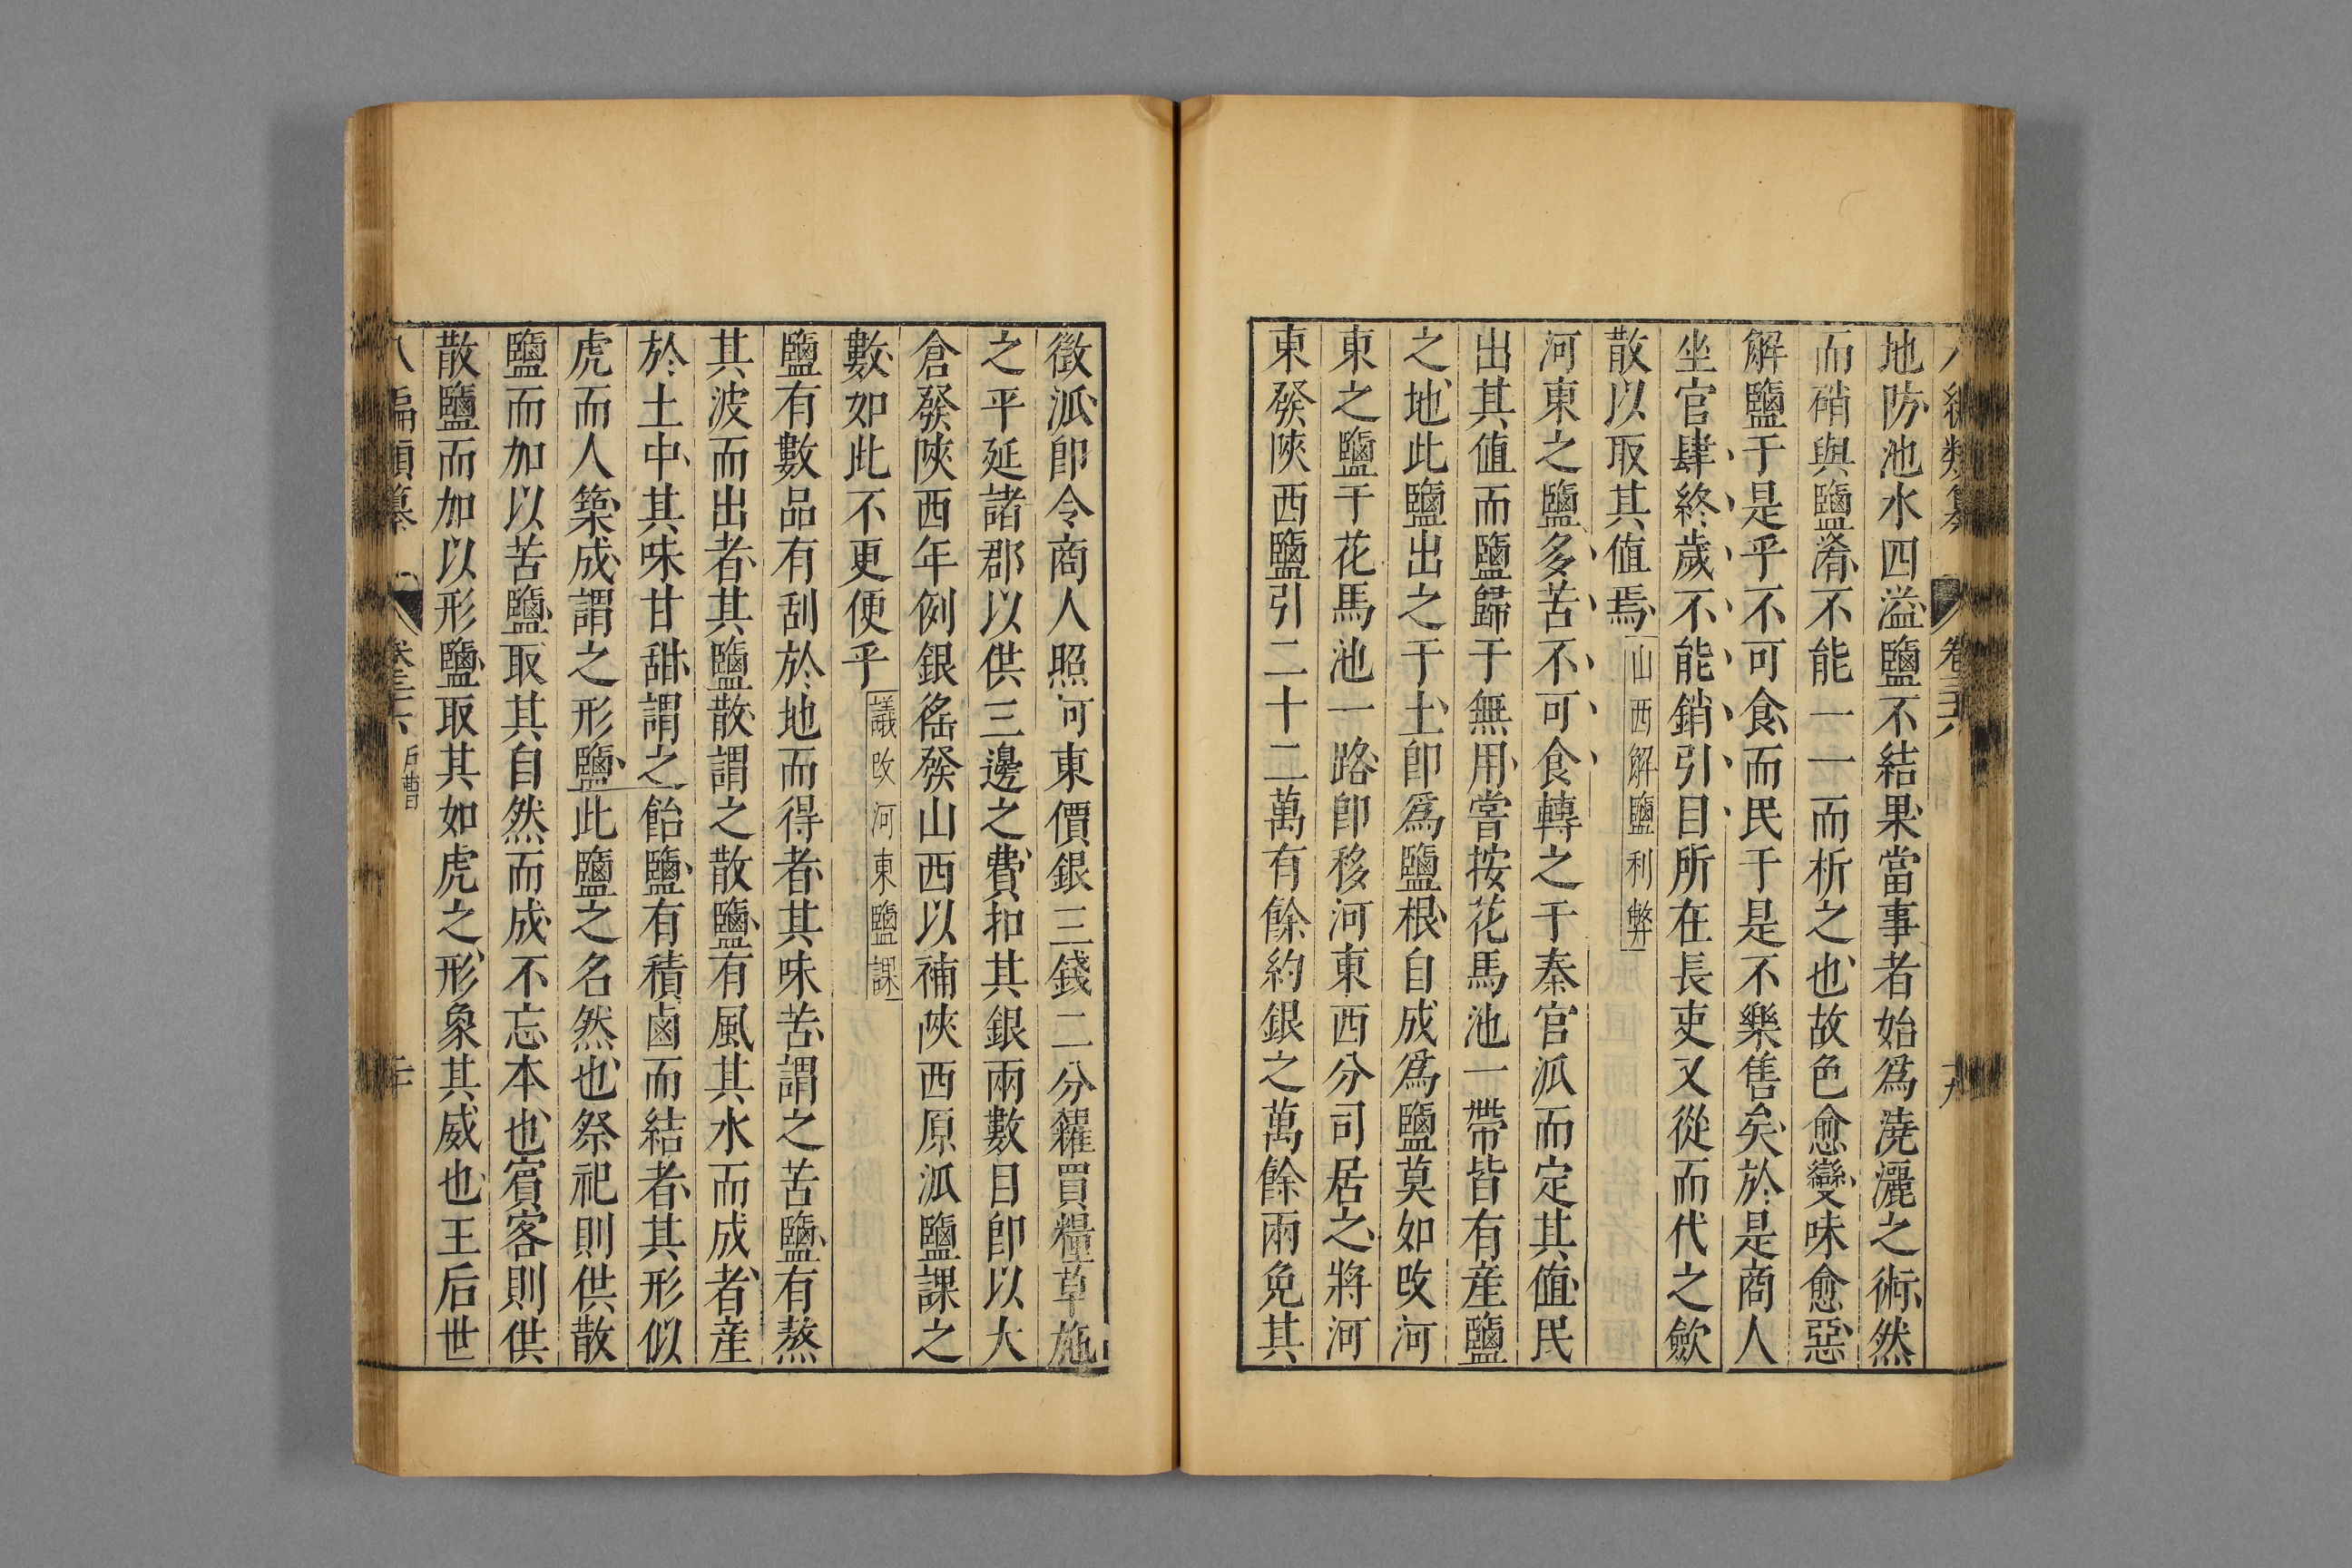 八編類纂 卷三六 十九
地防池水四溢鹽不結果當事者始爲澆灑之術然
而硝與鹽淆不能一一而析之也故色愈變味愈惡
解鹽于是乎不可食而民于是不樂售矣於是商人
坐官肆終歲不能銷引目所在長吏又從而代之歛
散以取其值焉山西解鹽利弊
河東之鹽多苦不可食轉之于秦官派而定其值民
出其值而鹽歸于無用嘗按花馬池一帶皆有産鹽
之地此鹽出之于土即爲鹽根自成爲鹽莫如改河
東之鹽于花馬池一路即移河東西分司居之將河
東發陝西鹽引二十二萬有餘約銀之萬餘兩免其
徵派卽令商人照河東價銀三錢二分糴買糧草施
之平延諸郡以供三邊之費扣其銀兩數目即以大
倉發陝西年例銀徭發山西以補陝西原派鹽課之
數如此不更便乎議改河東鹽課
鹽有數品有刮於地而得者其味苦謂之苦鹽有熬
其波而出者其鹽散謂之散鹽有風其水而成者産
於土中其味甘甜謂之飴鹽有積鹵而結者其形似
虎而人築成謂之形鹽此鹽之名然也祭祀則供散
鹽而加以苦鹽取其自然而成不忘本也賓客則供
散鹽而加以形鹽取其如虎之形象其威也王后世
八編類纂 卷三六 戶曹 二十